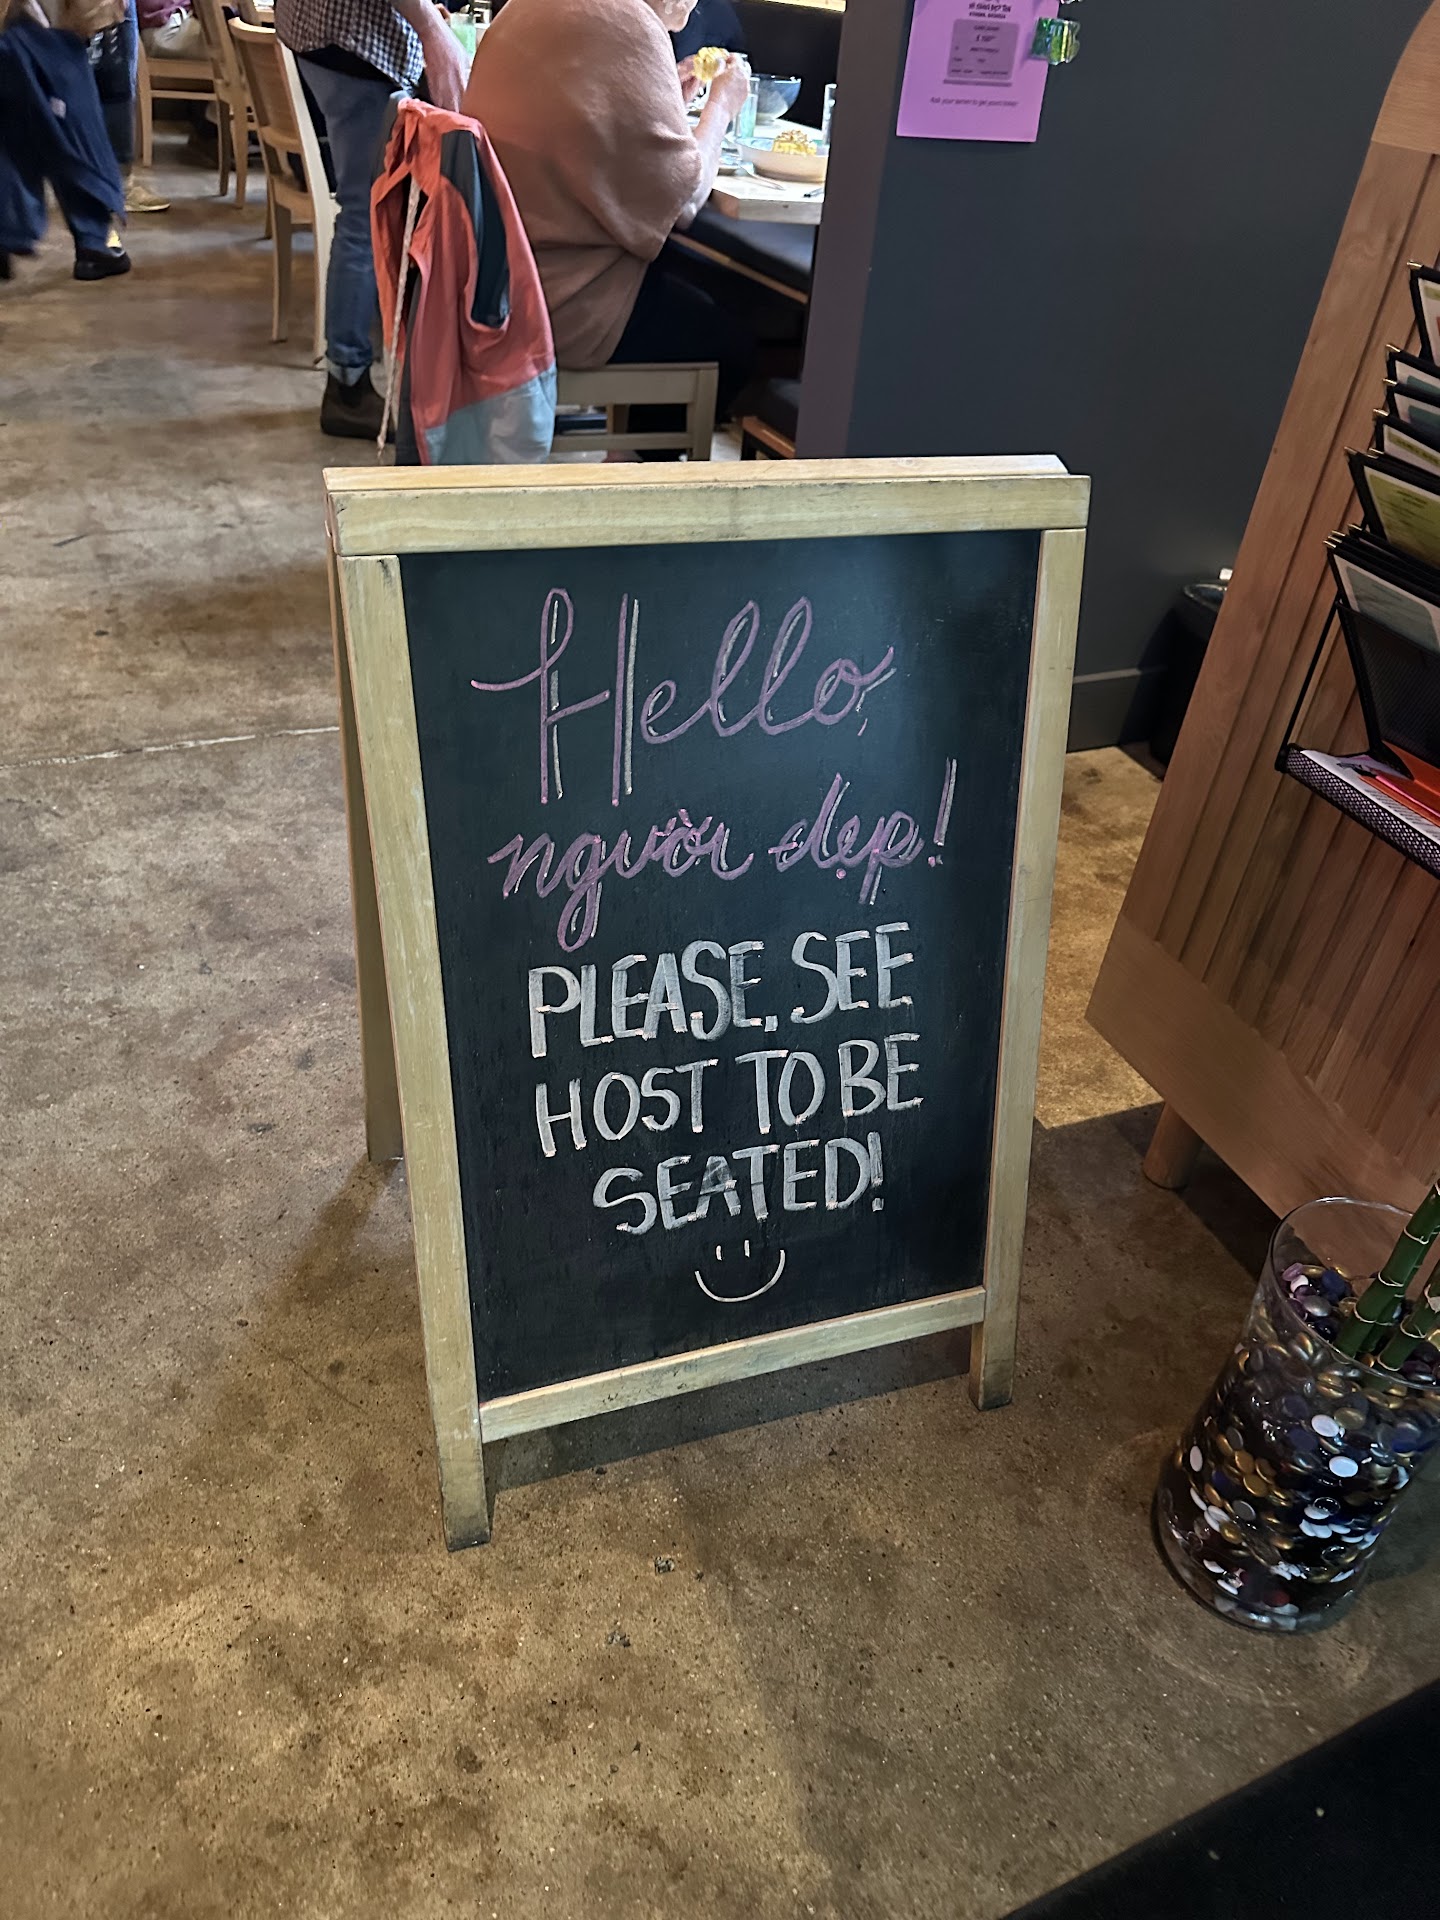 Hello,
người đẹp!
PLEASE. SEE
HOST TO BE
SEATED!